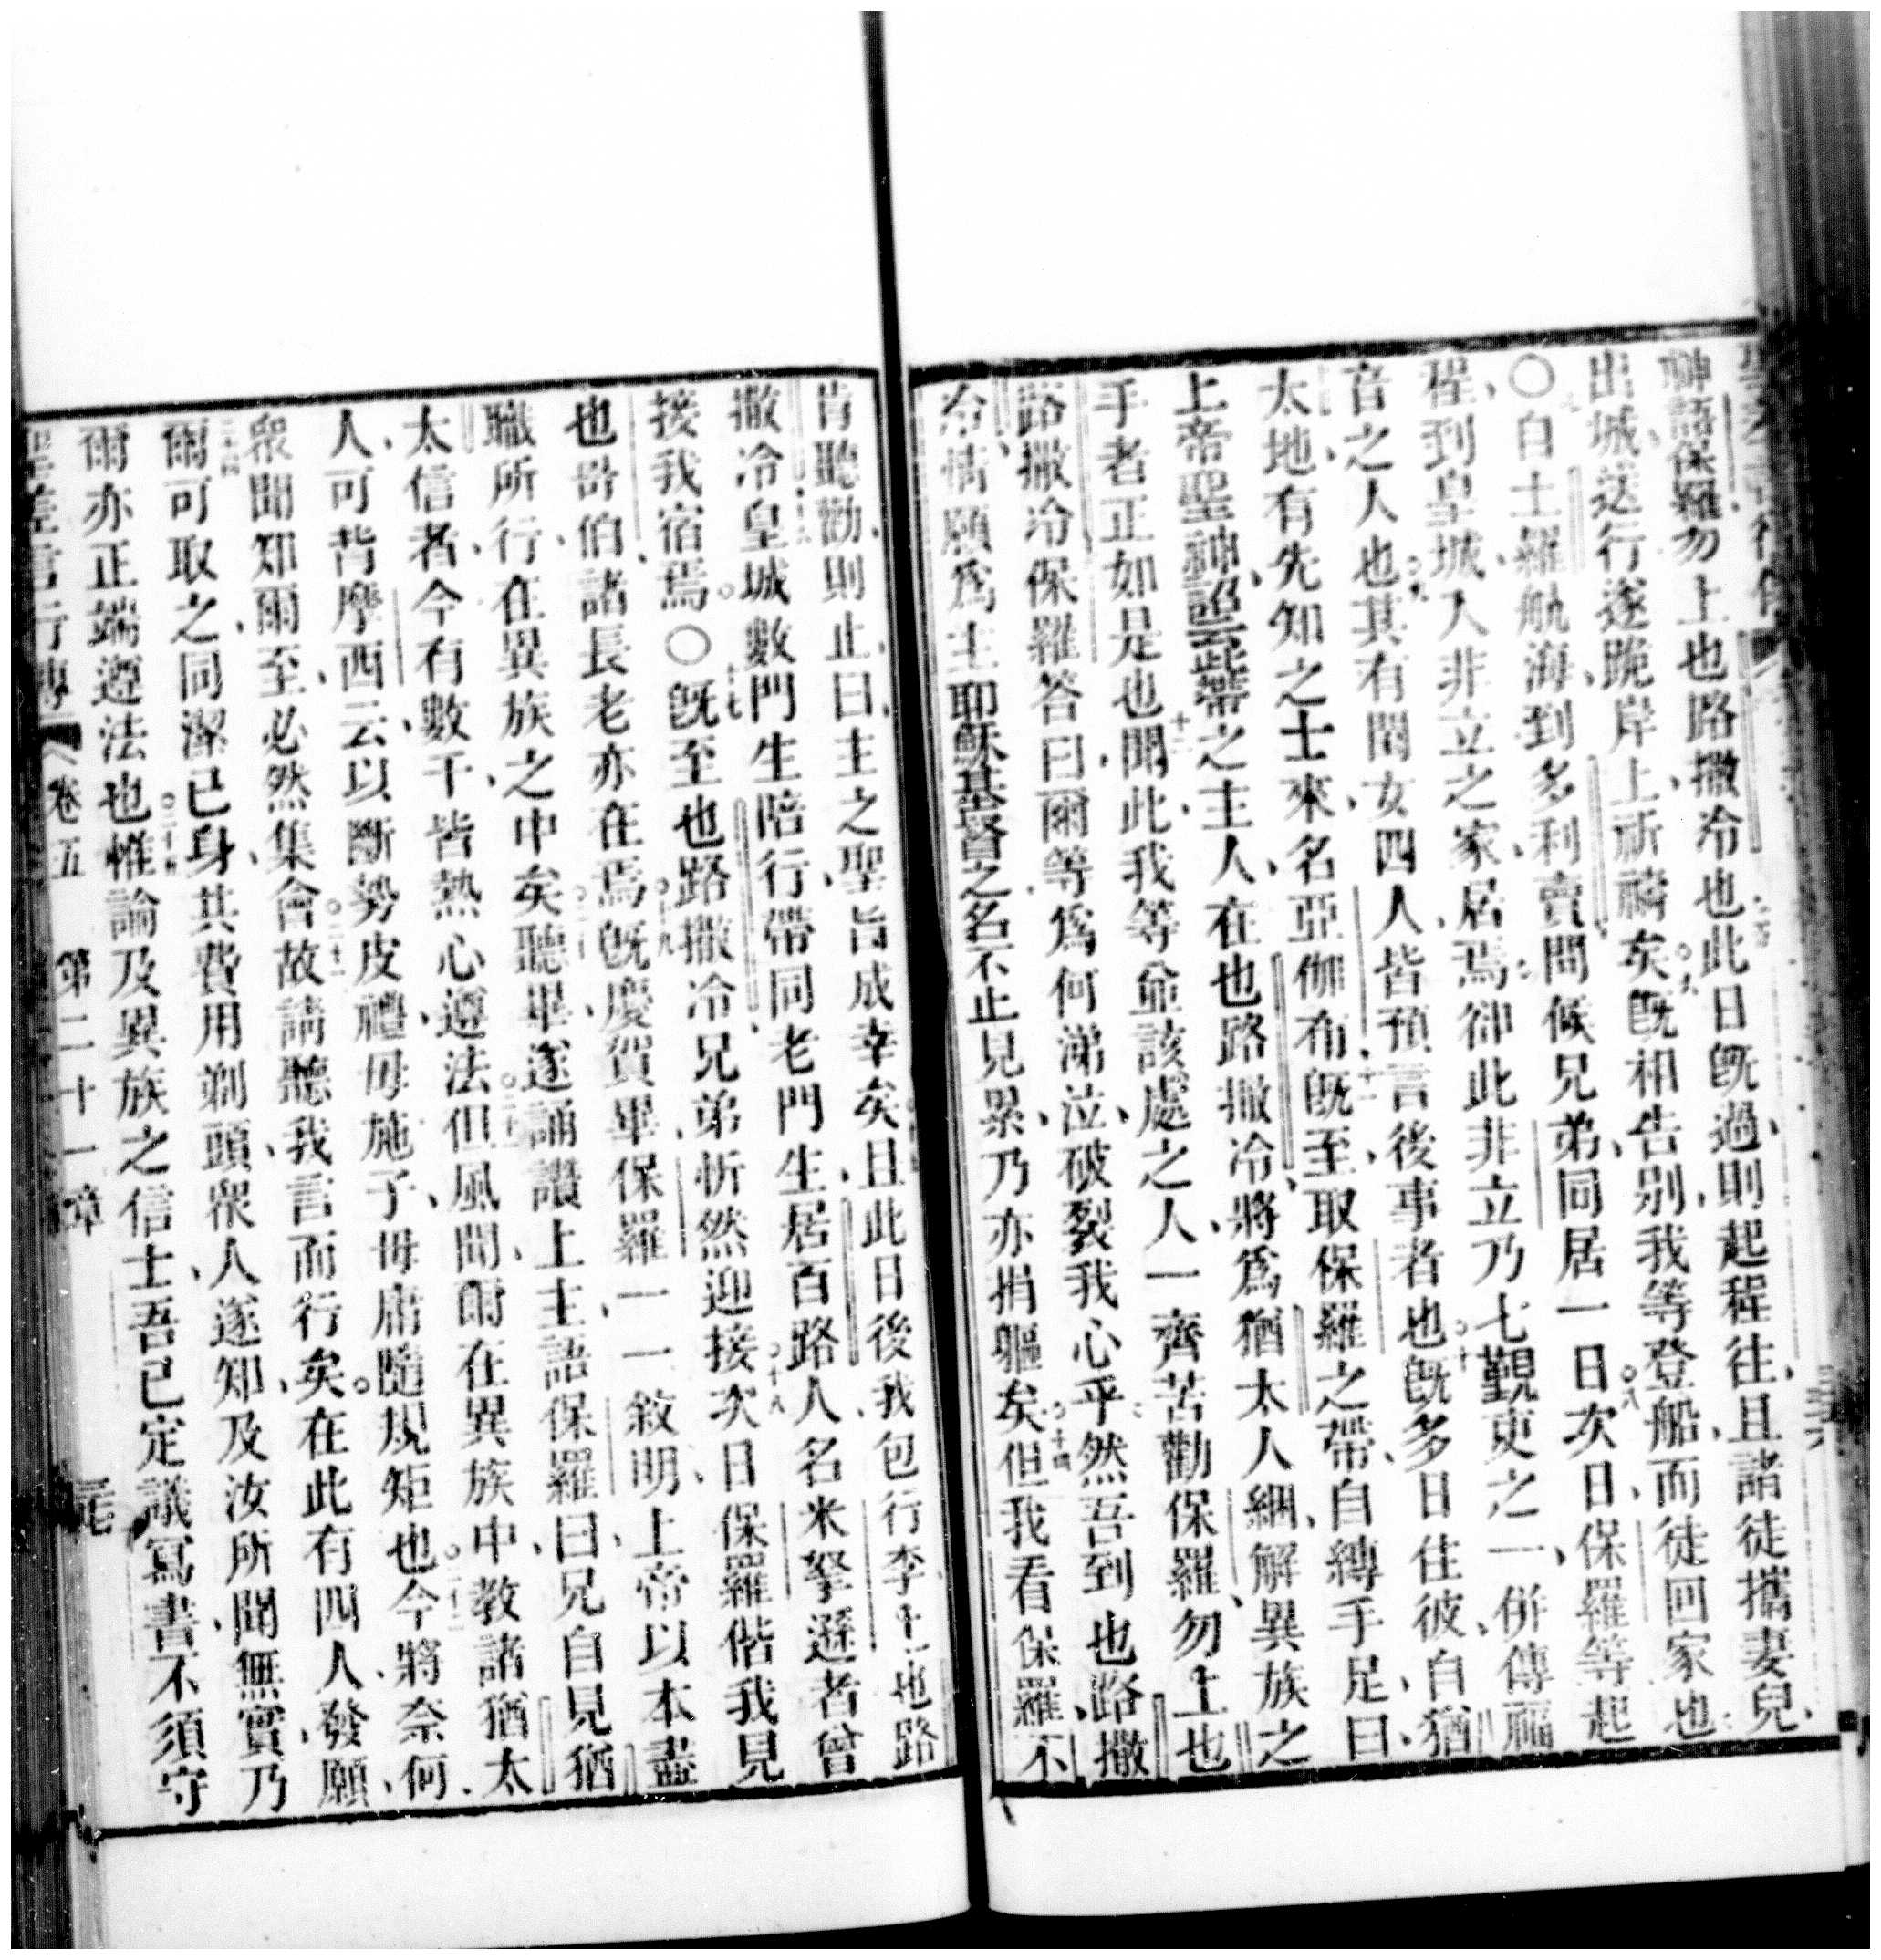 神語保羅勿上也路撒冷也此日既過則起程往且諸徒攜妻兒
出城送行遂跪岸上祈禱矣既相告別我等登船而徒回家也
〇自土羅航海到多利賣問候兄弟同居一日次日保羅等起
程到皇城入非立之家居焉卻此非立乃七觀吏之一併傳福
音之人也其有閨女四人皆預言後事者也既多日住彼自猶
太地有先知之士來名亞伽布既至取保羅之帶自縛手足曰
上帝聖神詔云此帶之主人在也路撒冷將爲猶太人綑解異族之
手者正如是也聞此我等並該處之人一齊苦勸保羅勿上也
路撒冷保羅答曰爾等爲何涕泣破裂我心乎然吾到也路撒
冷情願爲主耶穌基督之名不止見累乃亦捐軀矣但我看保羅不
肯聽勸則止曰主之聖旨成幸矣且此日後我包行李上也路
撒冷皇城數門生陪行帶同老門生居百路人名米拏遜者曾
接我宿焉〇既至也路撒冷兄弟忻然迎接次日保羅偕我見
也哿伯諸長老亦在焉既慶賀畢保羅一一敘明上帝以本盡
職所行在異族之中矣聽畢遂誦讚上主語保羅曰兄自見猶
太信者今有數千皆熱心遵法但風聞爾在異族中教諸猶太
人可背摩西云以斷勢皮禮毋施子毋庸隨規矩也今將奈何
眾聞知爾至必然集會故請聽我言而行矣在此有四人發願
爾可取之同潔己身共費用剃頭眾人遂知及汝所聞無實乃
爾亦正端遵法也惟論及異族之信士吾已定議寫書不須守
聖差言行傳 卷五 第二十一章